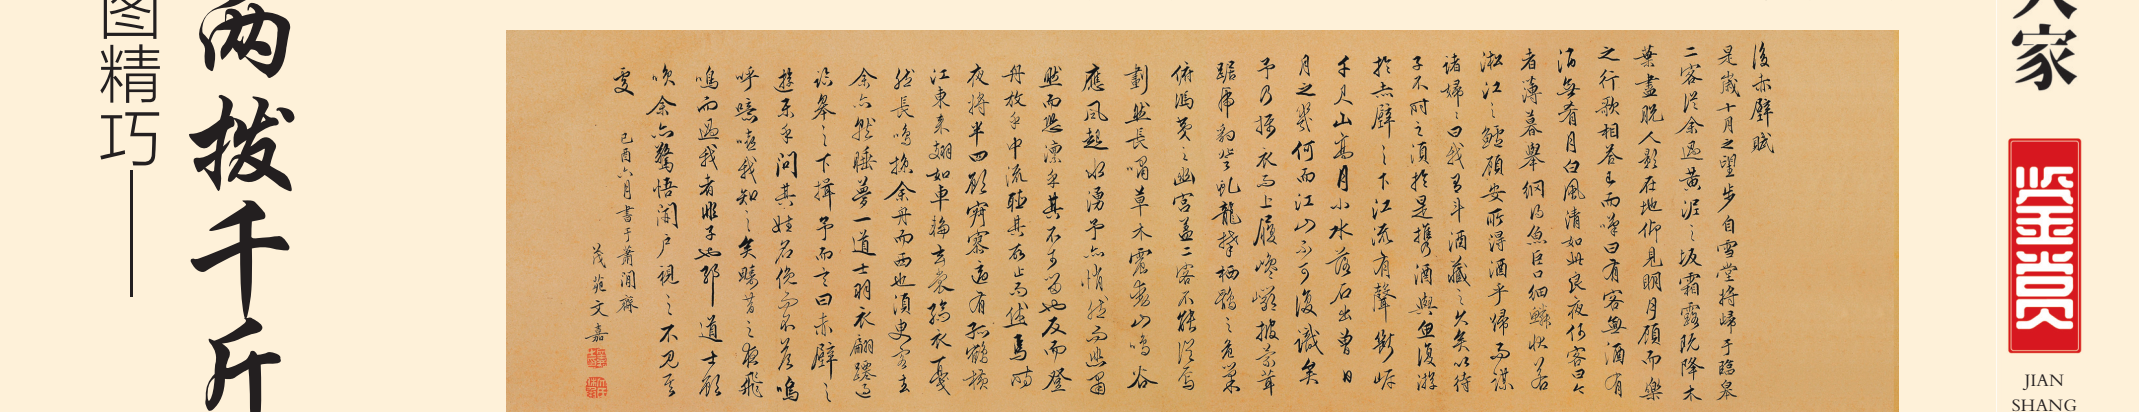 大家
鉴赏
JIAN
SHANG
後赤壁賦
是歲十月之望步自雪堂將歸于臨皋
二客從余過黃泥之坂霜露既降木
葉盡脫人影在地仰見明月顧而樂
之行歌相答已而嘆曰有客無酒有
酒無肴月白風清如此良夜何客曰今
者薄暮舉網得魚巨口細鱗狀若
淞江之鱸顧安所得酒乎歸而謀
諸婦婦曰我有斗酒藏之久矣以待
子不時之須於是攜酒與魚復游
於赤壁之下江流有聲斷岸
千尺山高月小水落石出曾日
月之幾何而江山不可復識矣
予乃攝衣而上履巉巖披蒙茸
踞虎豹登虬龍攀栖鶻之危巢
俯馮夷之幽宮蓋二客不能從焉
劃然長嘯草木震動山鳴谷
應風起水湧予亦悄然而悲肅
然而恐凜乎其不可留也反而登
舟放乎中流聽其所止而休焉時
夜將半四顧寂寥適有孤鶴橫
江東來翅如車輪玄裳縞衣戛
然長鳴掠余舟而西也須臾客去
余亦就睡夢一道士羽衣翩躚過
臨皋之下揖予而言曰赤壁之
遊樂乎問其姓名俛而不答嗚
呼噫嘻我知之矣疇昔之夜飛
鳴而過我者非子也耶道士顧
笑余亦驚悟開戶視之不見其
處
己酉六月書于蕭閒齋
茂苑文嘉
两拨千斤
图精巧——